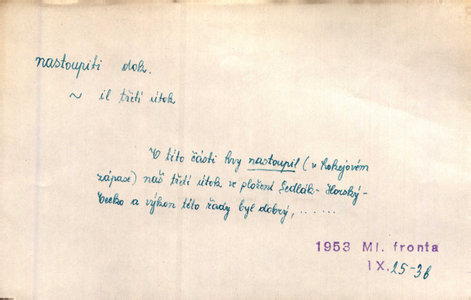 nastoupiti dok.
~ il třetí útok
V této části hry nastoupil (v hokejovém
zápase) náš třetí útok ve složení Sedlák - Horský -
Cecko a výkon této řady byl dobrý, ......
1953 Ml. fronta
IX. 25-3b